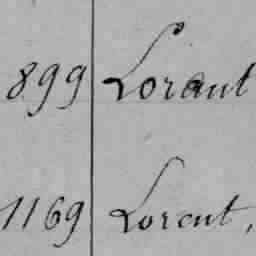 899 Loraut
1169 Lorent,